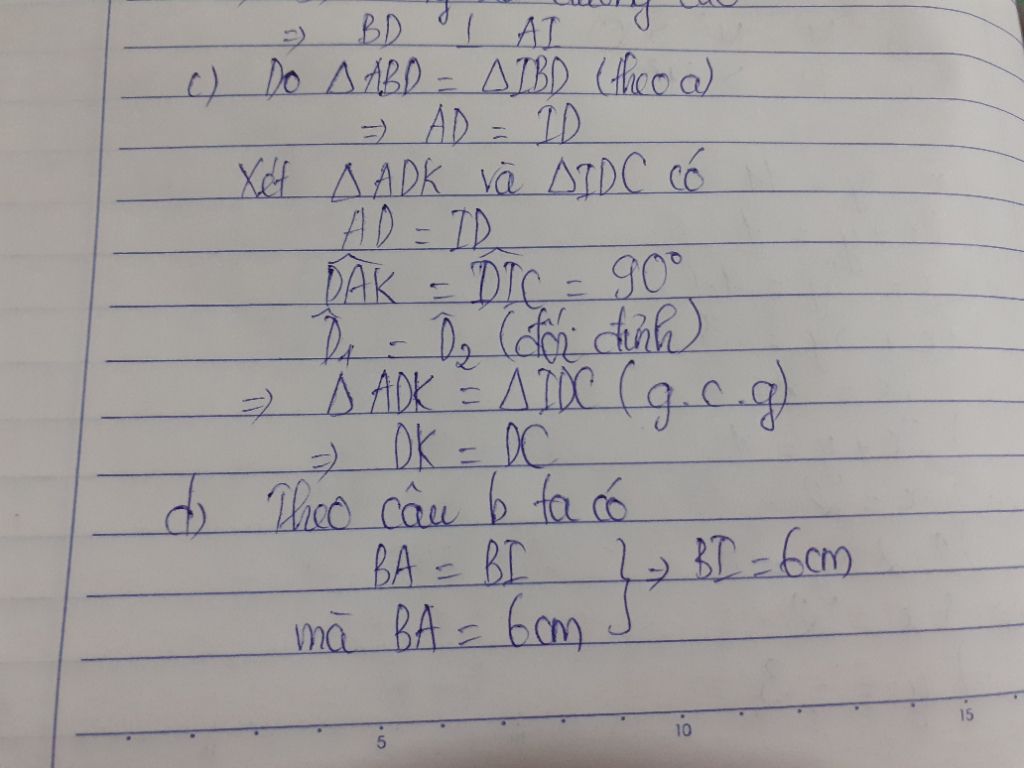 ⇒ BD ⊥ AI
c) Do △ABD = △IBD (theo a)
⇒ AD = ID
Xét △ADK và △IDC có
AD = ID
\widehat{DAK} = \widehat{DIC} = 90°
\widehat{D}₁ = \widehat{D}₂ (đối đỉnh)
⇒ △ADK = △IDC (g.c.g)
⇒ DK = DC
d) Theo câu b ta có
BA = BI } ⇒ BI = 6cm
mà BA = 6cm
5 10 15